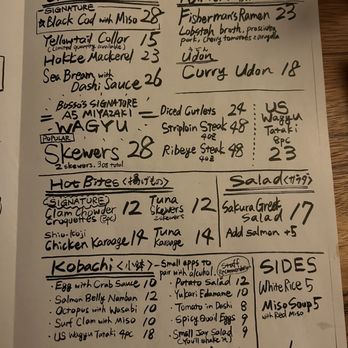 SIGNATURE
☆Black Cod with Miso 28
Yellowtail Collar 15
(Limited quantity available)
Hokke Mackerel 23
Sea Bream with Dashi Sauce 26
Fisherman's Ramen 23
Lobster broth, prosciutto
pork, cherry tomatoes & arugula
うどん
Udon
Curry Udon 18
BOSSO'S SIGNATURE
A5 MIYAZAKI
WAGYU
POPULAR
Skewers 28
2 skewers, 3oz total
Diced Cutlets 24
Striploin Steak 48
4oz
Ribeye Steak 48
4oz
US
Wagyu
Tataki
8pc
23
Hot Bites <揚げもの>
SIGNATURE
Clam Chowder
Croquettes (2pc) 12
Tuna
Skewers 12
2 skewers
Shio-Koji
Chicken Karaage 14
Tuna
Karaage 14
Salad <サラダ>
Sakura Greek
Salad 17
Add salmon +5
Kobachi <小鉢> Small apps to
pair with alcohol.
Staff
Recommended
・Egg with Crab Sauce 10
・Salmon Belly Nanban 12
・Octopus with Wasabi 10
・Surf Clam with Miso 10
・US Wagyu Tataki 4pc 18
・Potato Salad 12
・Yukari Edamame 10
・Tomato in Dashi 8
・Spicy Quail Eggs 9
・Small Soy Salad 9
(You'll shake it)
SIDES
White Rice 5
Miso Soup 5
with Red Miso